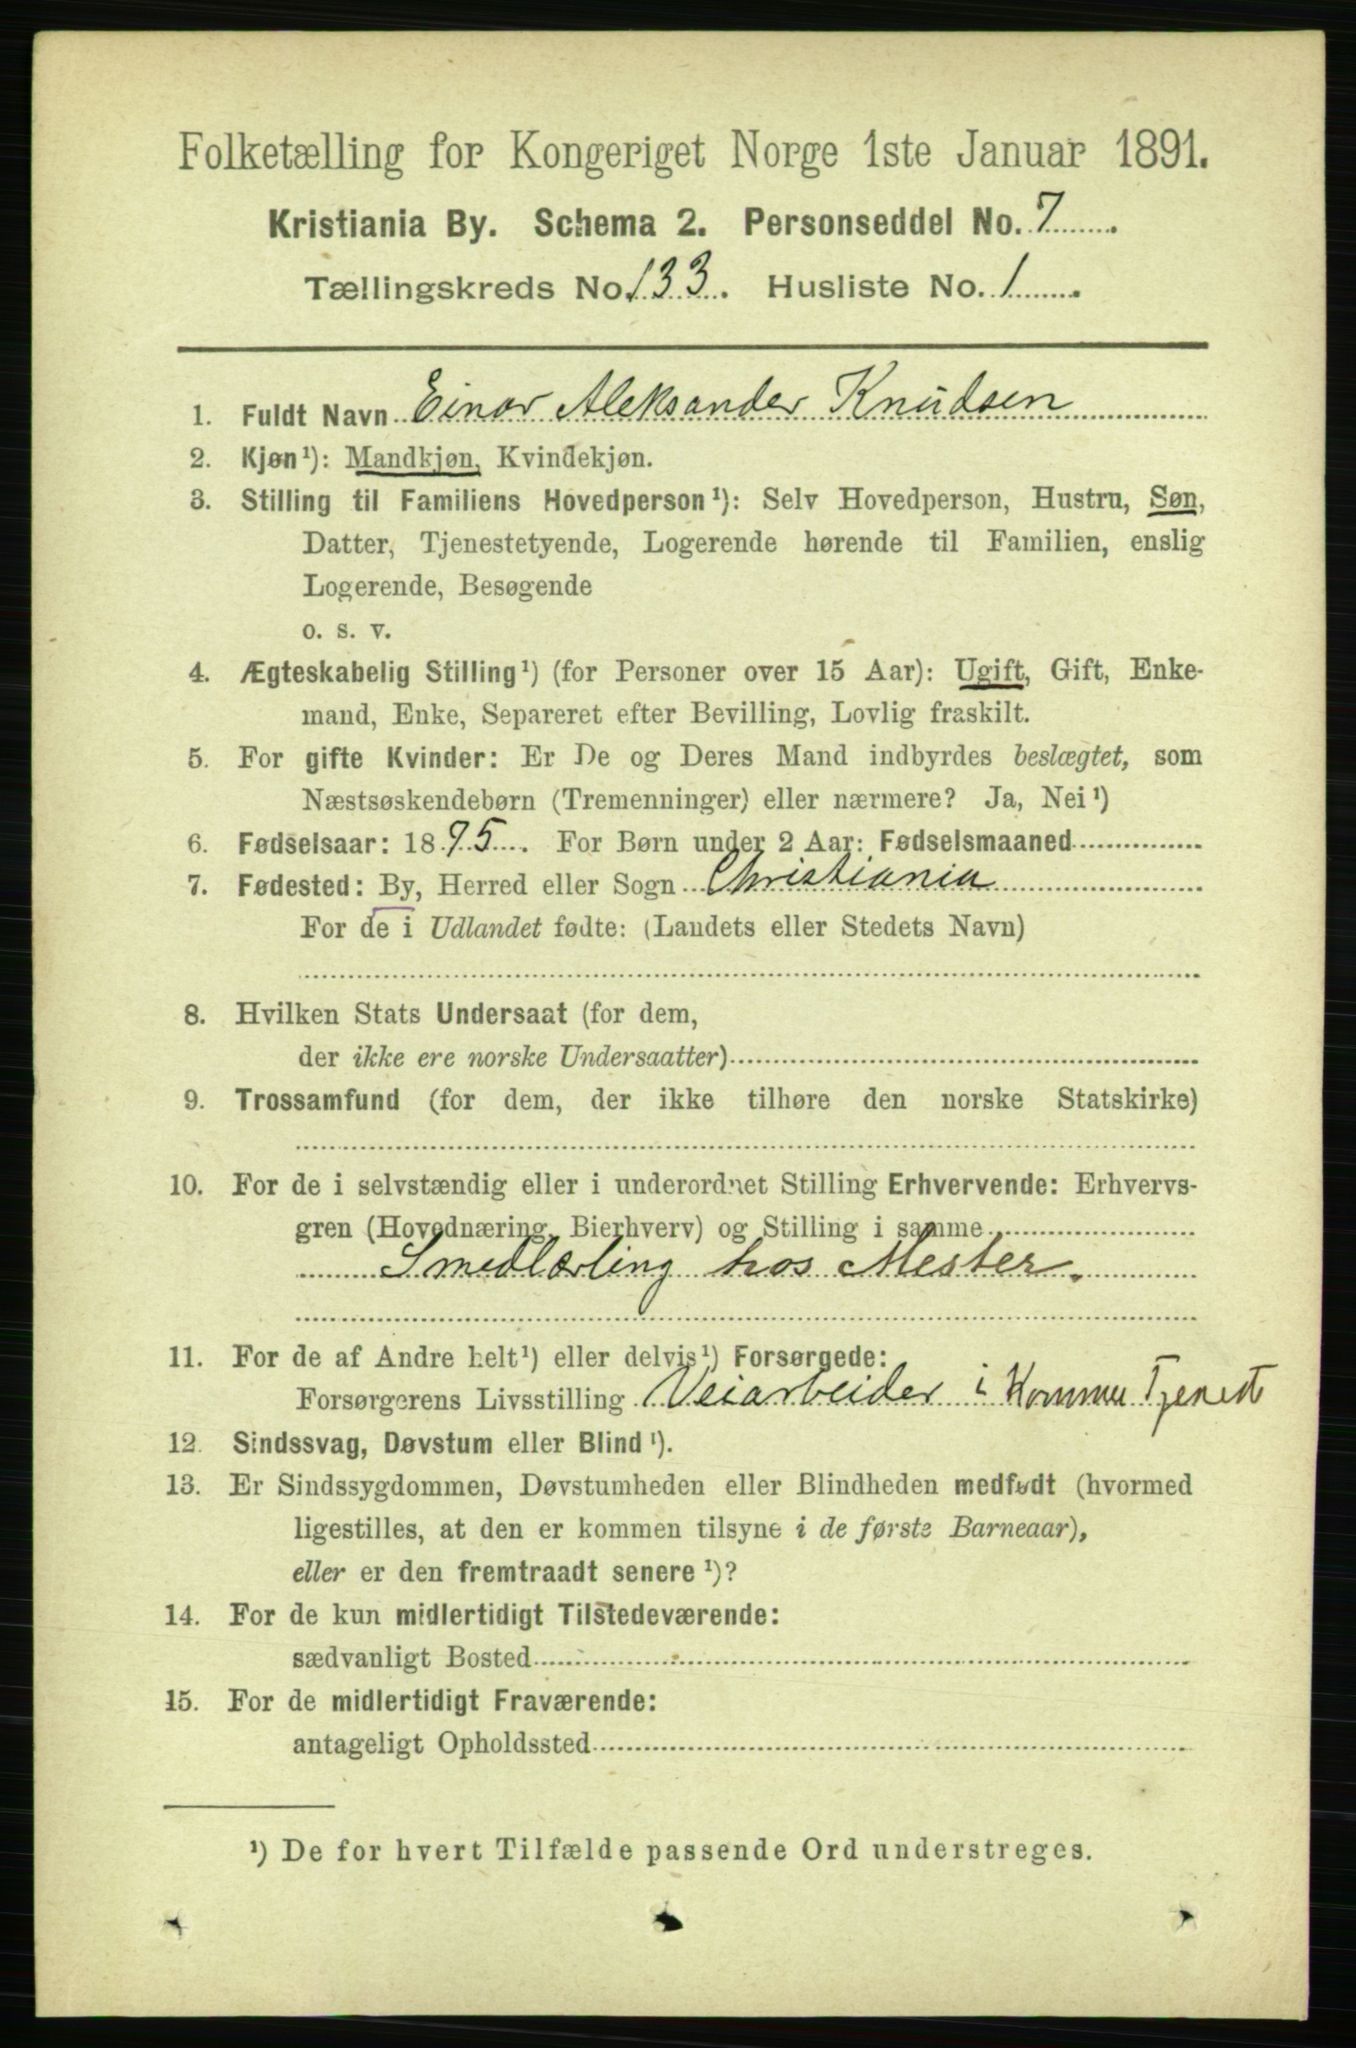 Folketælling for Kongeriget Norge 1ste Januar 1891.
Kristiania By. Schema 2. Personseddel No. 7
Tællingskreds No. 133. Husliste No. 1
1. Fuldt Navn Einar Aleksander Knudsen
2. Kjøn¹): Mandkjøn, Kvindekjøn.
3. Stilling til Familiens Hovedperson¹): Selv Hovedperson, Hustru, Søn,
Datter, Tjenestetyende, Logerende hørende til Familien, enslig
Logerende, Besøgende
o. s. v.
4. Ægteskabelig Stilling¹) (for Personer over 15 Aar): Ugift, Gift, Enke-
mand, Enke, Separeret efter Bevilling, Lovlig fraskilt.
5. For gifte Kvinder: Er De og Deres Mand indbyrdes beslægtet, som
Næstsøskendebørn (Tremenninger) eller nærmere? Ja, Nei¹)
6. Fødselsaar: 1875. For Børn under 2 Aar: Fødselsmaaned
7. Fødested: By, Herred eller Sogn Christiania
For de i Udlandet fødte: (Landets eller Stedets Navn)
8. Hvilken Stats Undersaat (for dem,
der ikke ere norske Undersaatter)
9. Trossamfund (for dem, der ikke tilhøre den norske Statskirke)
10. For de i selvstændig eller i underordnet Stilling Erhvervende: Erhvervs-
gren (Hovednæring, Bierhverv) og Stilling i samme
Smedlærling hos Mester.
11. For de af Andre helt¹) eller delvis¹) Forsørgede:
Forsørgerens Livsstilling Veiarbeider i Kommu Tjenest
12. Sindssvag, Døvstum eller Blind¹).
13. Er Sindssygdommen, Døvstumheden eller Blindheden medfødt (hvormed
ligestilles, at den er kommen tilsyne i de første Barneaar),
eller er den fremtraadt senere¹)?
14. For de kun midlertidigt Tilstedeværende:
sædvanligt Bosted
15. For de midlertidigt Fraværende:
antageligt Opholdssted
¹) De for hvert Tilfælde passende Ord understreges.